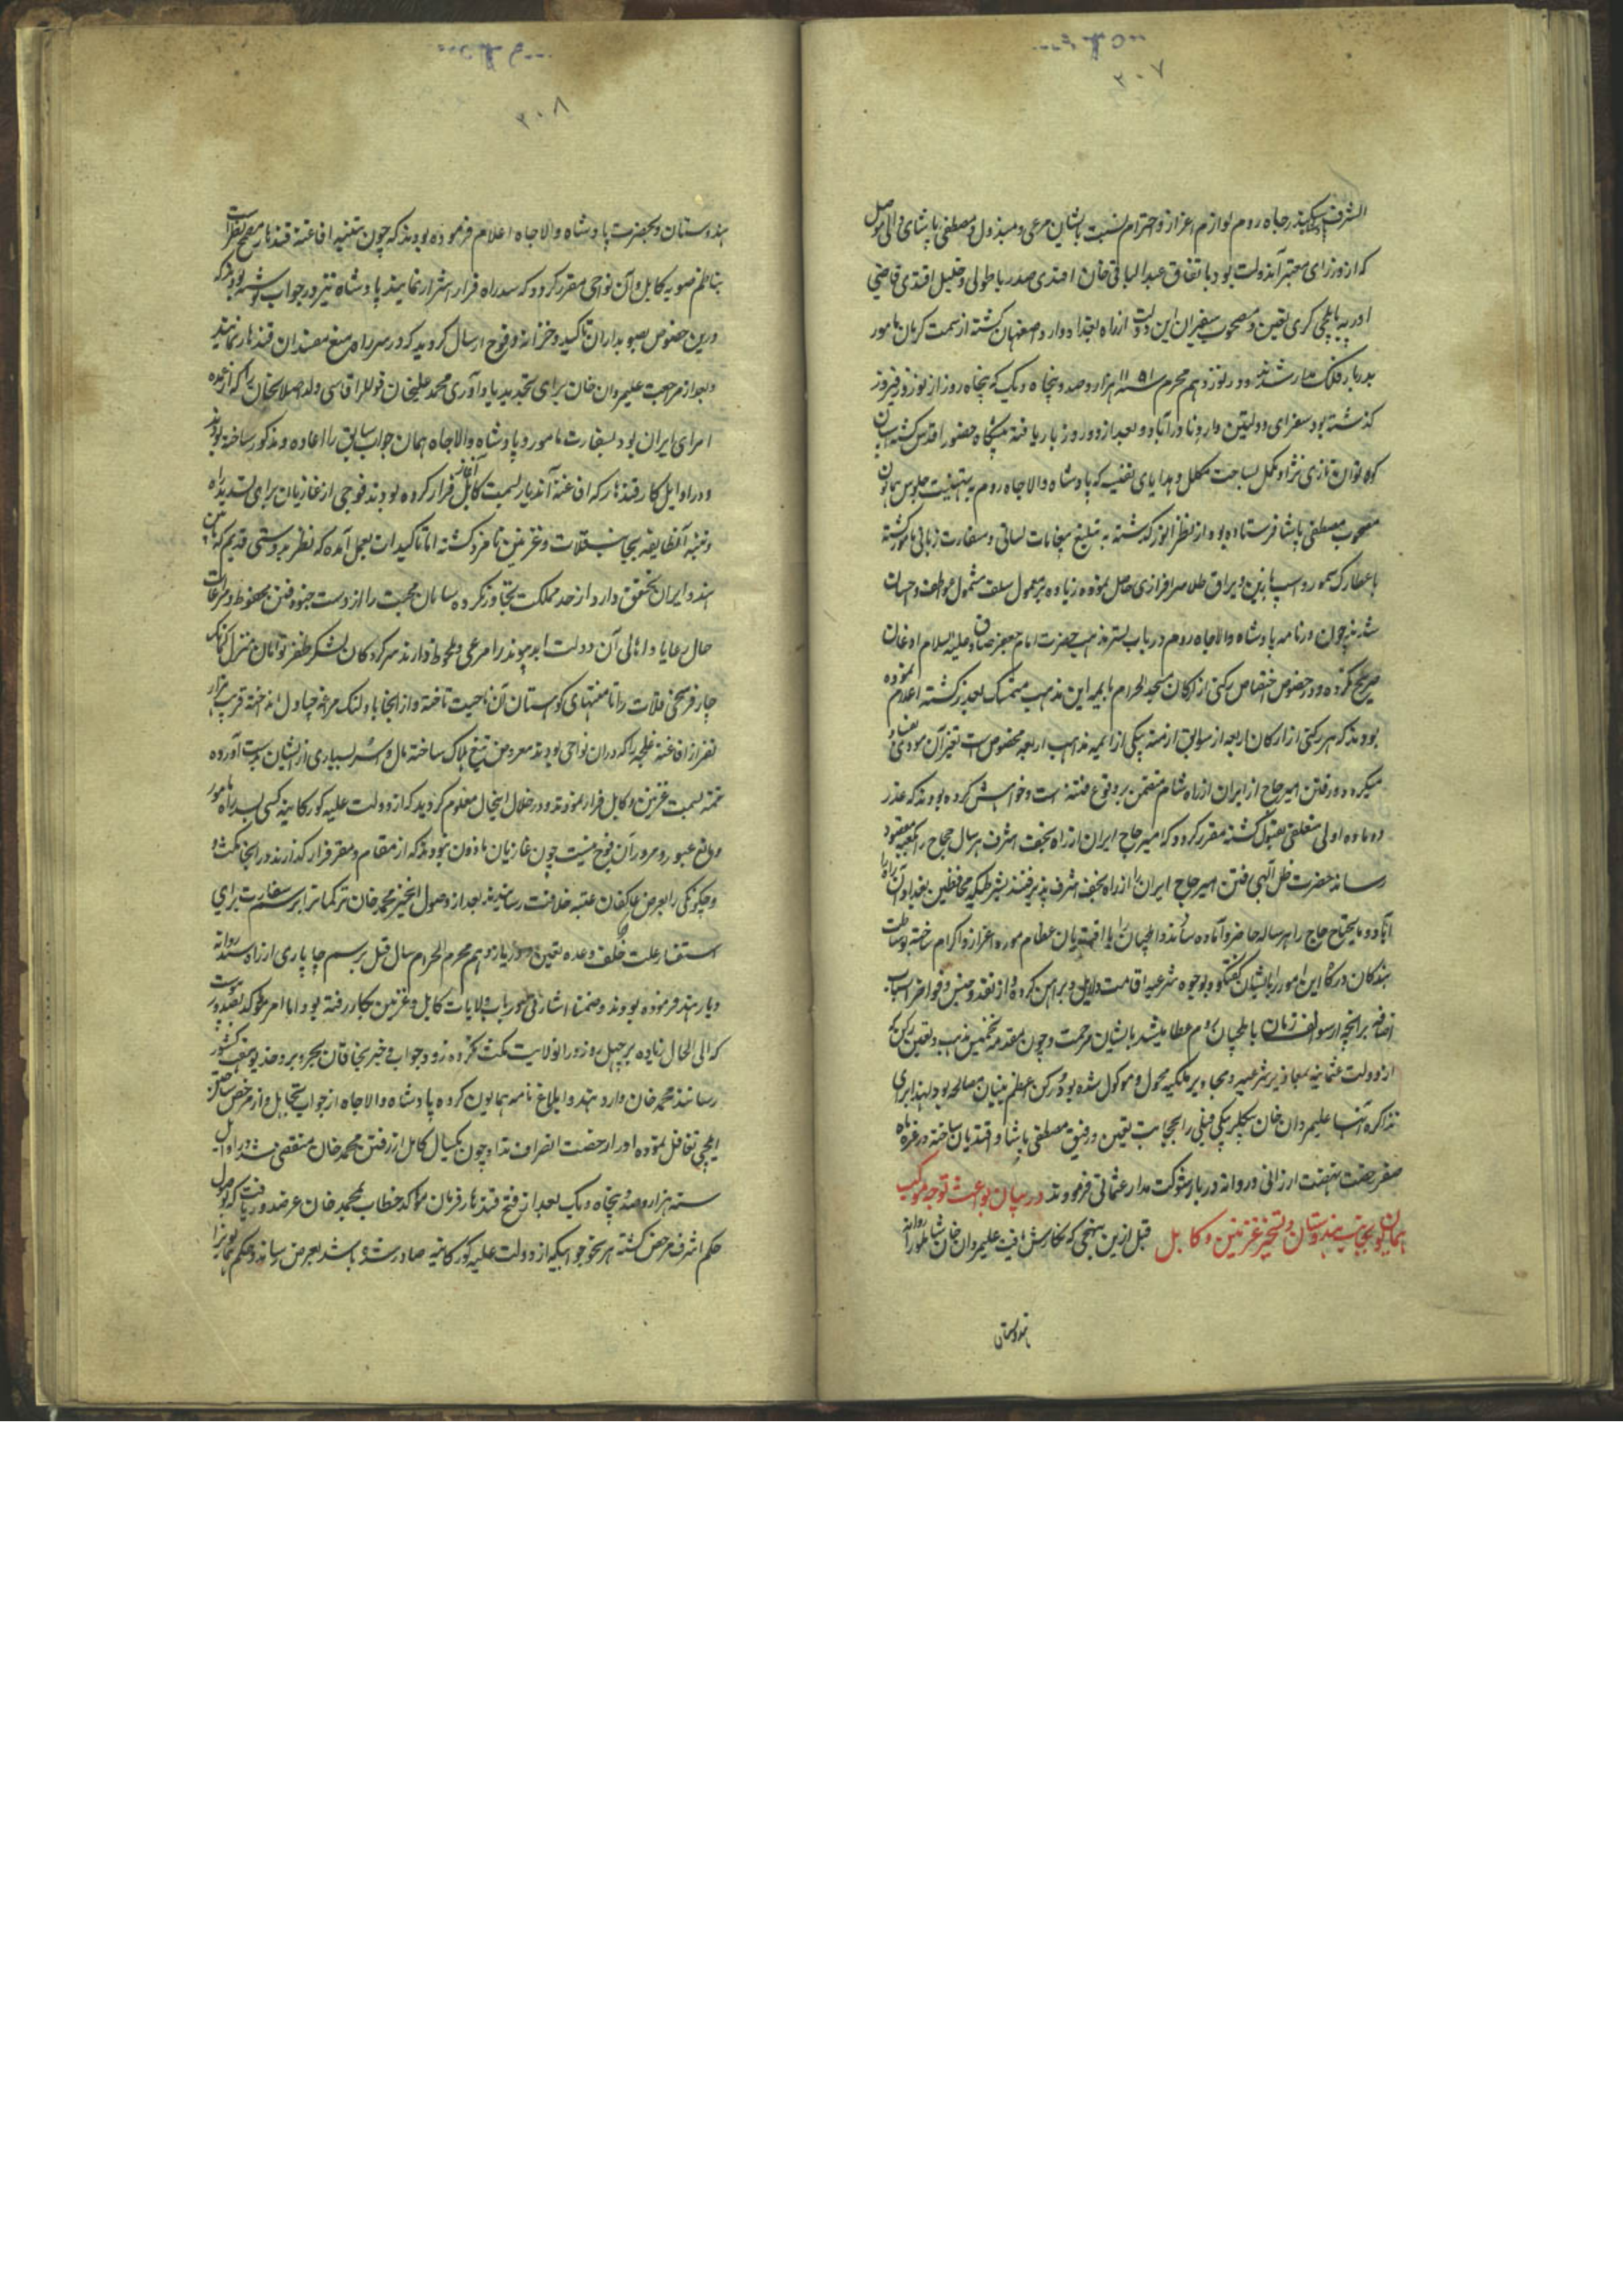 ۲۰۷
الشرف سکندر جاه روم لوازم اعزاز و احترام نسبت بایشان مرعی و مبذول و مصطفی پاشای والی موصل
که از وزرای معتبر آندولت بود باتفاق عبدالباقی خان افندی صدر باطولی و خلیل افندی قاضی
ادرنه بایلچی کری تعیین و مصحوب سفیران این دولت از راه بغداد وارد اصفهان کشته از سمت کرمان مامور
بدربار فلک مدار شدند و در نوزدهم محرم ۱۱۵۱ سنه هزار و صد و پنجاه و یک که پنجاه روز از نوروز فیروز
کذشته بود سفرای دولتین وارد نادرآباد و بعد از دو روز بار یافته پیشکاه حضور اقدس کشته اسبان
کوه توان تازی نژاد مکمل بساخت مکلل و هدایای نفیسه که پادشاه والاجاه روم به تهنیت جلوس همایون
مصحوب مصطفی پاشا فرستاده بود از نظر انور کذشته به تبلیغ پیغامات لسانی و سفارت زبانی مامور کشته
باعطار کرسمور و اسب بازین و یراق طلا سرافرازی حاصل نموده زیاده بر معمول سلف مشمول عواطف و احسان
شدند چون در نامه پادشاه والاجاه روم در باب بستر مذهب حضرت امام جعفر صادق علیه السلام اذعان
صریح نکرده و در خصوص اختصاص رکنی از ارکان مسجد الحرام بایمه این مذهب متمسک بعذر کشته اعلام نموده
بودند که هر رکنی از ارکان اربعه از سوابق ازمنه بیکی از ایمه مذاهب اربعه مخصوص است تغییر آن مودی بفساد
میکردد و رفتن امیر حاج از ایران از راه شام متضمن بر وقوع فتنه است و خواهش کرده بودند که عذر
دو ماده اولی مغلقی بقبول کشته مقرر کردد که امیر حاج ایران از راه نجف اشرف هر سال حجاج را بکعبه مقصود
رساند حضرت ظل الهی رفتن امیر حاج ایران را از راه نجف اشرف پذیرفتند بشرطیکه محافظین بغداد آن راه را
آباد و مایحتاج حاج را هر ساله حاضر و آماده سازند و ایلچیان را با افندیان عظام مورد اعزاز و اکرام ساخته بوساطت
بندکان درکاه این امور را بایشان کفتکو و بوجوه شرعیه اقامت دلایل و براهین کرده و از نقد و جنس و فواخر اسباب
اضافه بر آنچه از سوالف زمان بایلچیان روم عطا میشد بایشان مرحمت و چون مقدمه تخمیس مذهب و تعیین رکن که
از دولت عثمانیه بمعاذیر شرعیه و محاویر ملکیه محول و موکول شده بود رکن اعظم بنیان مصالحه بود لهذا برای
مذاکره آنها علیمردان خان بیکلربیکی فیلی را بحجابت تعیین و رفیق مصطفی پاشا و افندیان ساخته در غره ماه
صفر رخصت نهضت ارزانی و روانه دربار شوکت مدار عثمانی فرمودند در بیان بواعث توجه موکب
همایون بجانب هندوستان و تسخیر غزنین و کابل قبل ازین بنهجی که نکارش یافت علیمردان خان شاملو را روانه
هندوستان
۲۰۸
هندوستان و بحضرت پادشاه والاجاه اعلام فرموده بودند که چون تنبیه افاغنه قندهار مصمم نظر است
بناظم صوبه کابل و آن نواحی مقرر کردد که سد راه فرار اشرار نمایند پادشاه نیز در جواب نوشته بودند که
درین خصوص بصوبه داران تاکید و خزانه و فوج ارسال کردید که در سر راه منع مفسدان قندهار نمایند
و بعد از مراجعت علیمردان خان برای تجدید یادآوری محمد علیخان قوللر اقاسی ولد اصلانخان را که از عمده
امرای ایران بود بسفارت مامور و پادشاه والاجاه همان جواب سابق را اعاده و مذکور ساخته بودند
و در اوایل کار قندهار که افاغنه آندیار بسمت کابل آغاز فرار کرده بودند فوجی از غازیان برای تسدید راه
و تنبیه آنطایفه بجانب قلات و غزنین نامزد کشته اما تاکیدات بعمل آمده که نظر بدوستی قدیم که مابین
هند و ایران تحقق دارد از حد مملکت تجاوز نکرده سامان محبت را از دست جنود فتن محفوظ و مراعات
حال رعایا و اهالی آن دولت ابد پیوند را مرعی و ملحوظ دارند سرکردکان لشکر ظفر توامان منزل اکنک
چار فرسخی قلات را تا منتهای کوهستان آن ناحیت تاخته و از آنجا باولنک مرغه چپاول انداخته قرب هزار
نفر از افاغنه غلجه را که در آن نواحی بودند معروض تیغ هلاک ساخته مال و اسر بسیاری از ایشان بدست آورده
تتمه بسمت غزنین و کابل فرار نمودند و در خلال اینحال معلوم کردید که از دولت علیه کورکانیه کسی بسد راه مامور
و مانع عبور و مرور آن فوج نیست چون غازیان ماذون نبودند که از مقام و مقر فرار کذارند در آنجا مکث
و چکونکی را بعرض عاکفان عتبه خلافت رسانیدند بعد از وصول اینخبر محمد خان ترکمانرا برسم سفارت برای
استفسار علت خلف وعده تعیین و در یازدهم محرم الحرام سال قبل برسم چاپاری از راه سند روانه
دیار هند فرموده بودند و ضمنا اشارتی هم در باب ولایات کابل و غزنین بکار رفته بود اما امر موکد بصدور پیوست
که الی الحال زیاده بر چهل روز در آنولایت مکث نکرده زود جواب و خبر بخاقان بحر و بر و خدیو هفت کشور
رساند محمد خان وارد هند و ابلاغ نامه همایون کرده پادشاه والاجاه از جواب تجاهل و از مرخص ساختن
ایلچی تغافل نموده او را رخصت انصراف نداد چون یکسال کامل از رفتن محمد خان منقضی شد در اوایل
سنه هزار و صد و پنجاه و یک بعد از فتح قندهار فرمان موکد خطاب بمحمد خان عرضدور یافت که بوصول
حکم اشرف مرخص کشته هر نحو جوابیکه از دولت علیه کورکانیه صادر شده باشد بعرض رساند و حکم همایونرا